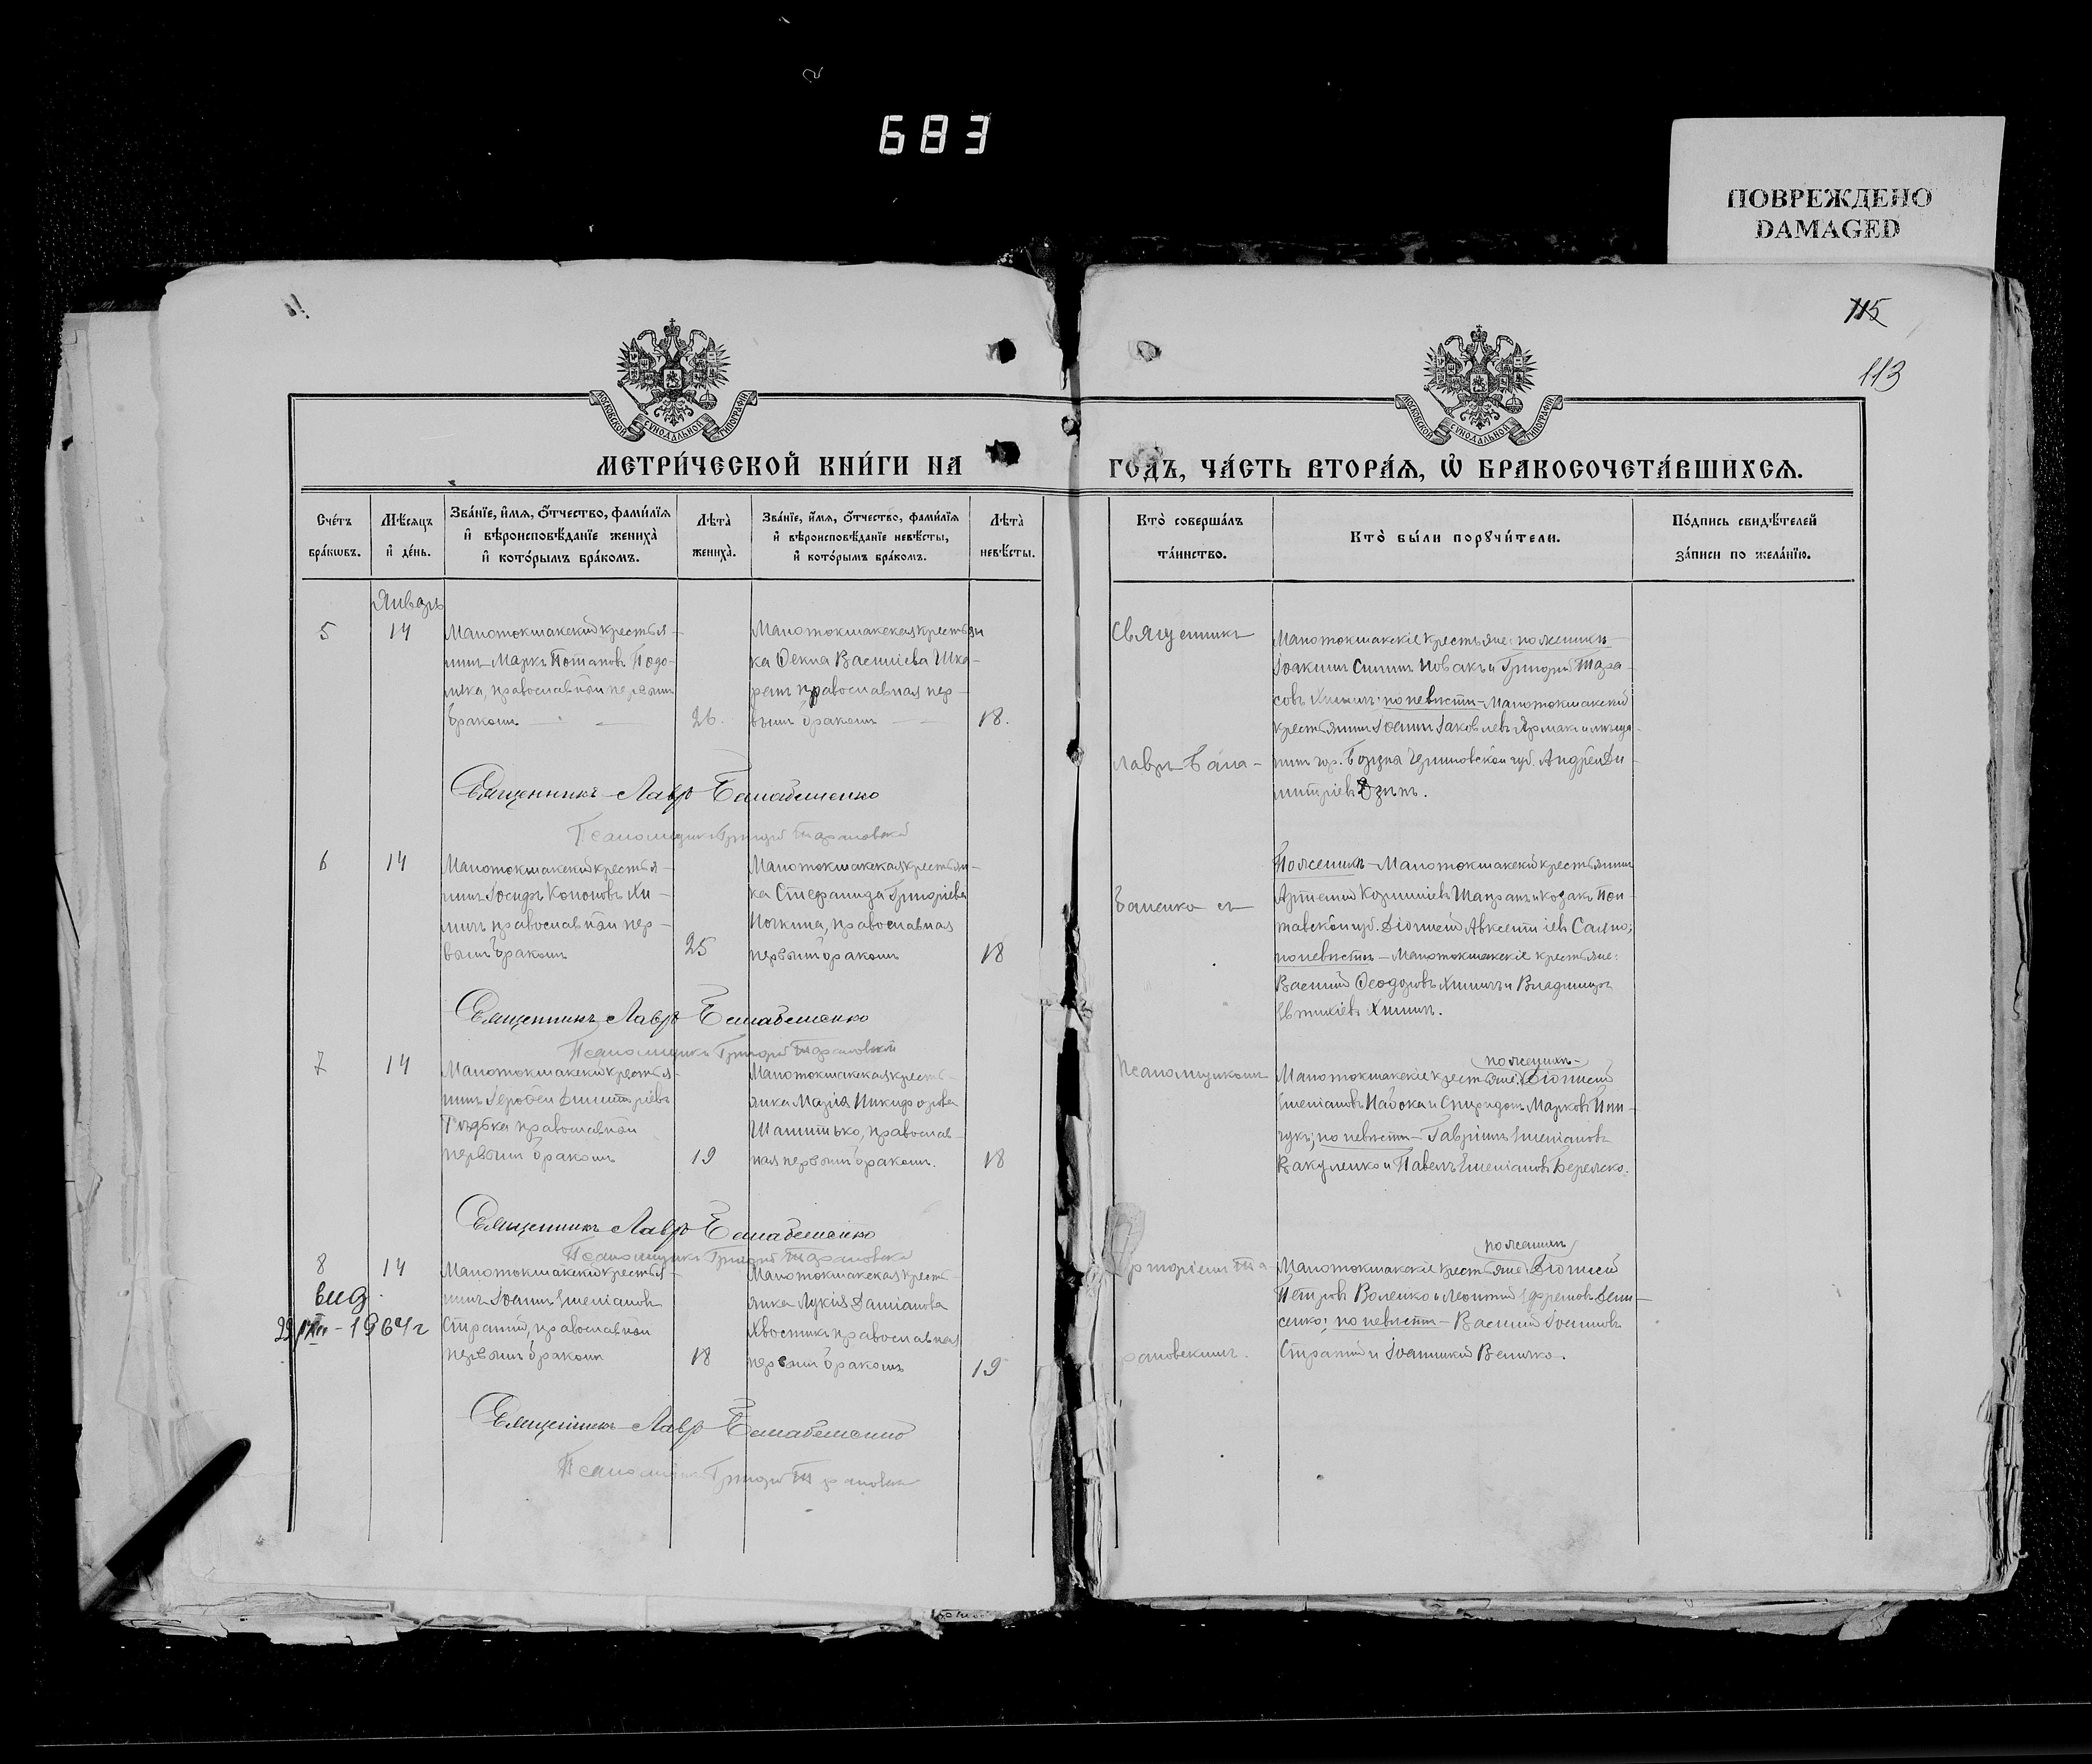 683
ПОВРЕЖДЕНО
DAMAGED
115
113
МОСКОВСКОЙ СУНОДАЛЬНОЙ ТИПОГРАФІИ
МОСКОВСКОЙ СУНОДАЛЬНОЙ ТИПОГРАФІИ
МЕТРИ́ЧЕСКОЙ КНИ́ГИ НА
ГОДЪ, ЧА́СТЬ ВТОРА́Я, Ѡ БРАКОСОЧЕТА́ВШИХСЯ.
Сче́тъ бра́кѡвъ.
Мѣ́сяцъ и де́нь.
Зва́нїе, и́мя, ѻ́тчество, фами́лїя
и вѣроисповѣ́данїе женихà
и кото́рымъ бра́комъ.
Лѣтà женихà.
Зва́нїе, и́мя, ѻ́тчество, фами́лїя
и вѣроисповѣ́данїе невѣ́сты,
и кото́рымъ бра́комъ.
Лѣтà невѣ́сты.
Ктò соверша́лъ
та́инство.
Ктò бы́ли порꙋчи́тели.
По́дпись свидѣ́телей
за́писи по жела́нїю.
Январь
5
14
Малотокмакскій крестья-
нинъ Маркъ Потаповъ
православный первымъ
бракомъ
26.
Малотокмакская крестьян
ка Ѳекла Василіева Шка-
православная пер-
вымъ бракомъ
18.
Священникъ
Малотокмакскіе крестьяне: по женихѣ
Іоакимъ Новакъ и Григорій Тара-
совъ Химич; по невѣстѣ - Малотокмакскій
крестьянинъ Іоаннъ Іаковлевъ Ярмак и мѣща-
Лавръ Бала-
нинъ гор. Борзна Черниговской губ. Андрей Ди-
митріевъ
Священникъ Лавръ Балабаненко
Псаломщикъ Григорій Тарановскій
6
14
Малотокмакскій крестья-
нинъ Іосифъ Кононовъ Хи-
мичъ православный пер-
вымъ бракомъ
25
Малотокмакская крестьян-
ка Стефанида Григоріева
православная
первымъ бракомъ
18
баненко съ
По женихѣ - Малотокмакскій крестьянинъ
Артемій Шапранъ и козакъ Пол-
тавской губ. Діонисій Авксентіевъ
по невѣстѣ - Малотокмакскіе крестьяне:
Василій Ѳеодоровъ Химичъ и Владимиръ
Евтихіевъ Химич.
Священникъ Лавръ Балабаненко
Псаломщикъ Григорій Тарановскій
7
14
Малотокмакскій крестья-
нинъ Іероѳей Димитріевъ
православный
первымъ бракомъ
19
Малотокмакская кресть-
янка Марія Никифорова
православ-
ная первымъ бракомъ.
18
псаломщикомъ
по женихѣ-
Малотокмакскіе крестьяне: Діонисій
Емеліановъ Набока и Спиридонъ Марковъ
по невѣстѣ - Гавріилъ Емеліановъ
Вакуленко и Павелъ Емеліановъ
Священникъ Лавръ Балабаненко
Псаломщикъ Григорій Тарановскій
8
14
выд.
1964г
Малотокмакскій крестья-
нинъ Іоаннъ Емеліановъ
Стратій, православный
первымъ бракомъ
18
Малотокмакская кресть-
янка Лукія Даміанова
Хвостикъ православная
первымъ бракомъ
19
Григоріемъ Та-
рановскимъ.
по женихѣ
Малотокмакскіе крестьяне: Діонисій
Петровъ Воленко и Леонтій Ефремовъ Дени-
сенко; по невѣстѣ - Василій Іоанновъ
Стратій и Іоанникій Величко.
Священникъ Лавръ Балабаненко
Псаломщикъ Григорій Тарановскій